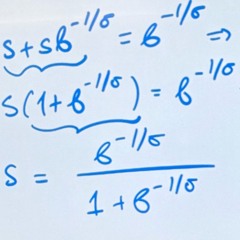 s + sb^{-1/σ} = b^{-1/σ} ⇒
s(1 + b^{-1/σ}) = b^{-1/σ}
s = \frac{b^{-1/σ}}{1 + b^{-1/σ}}